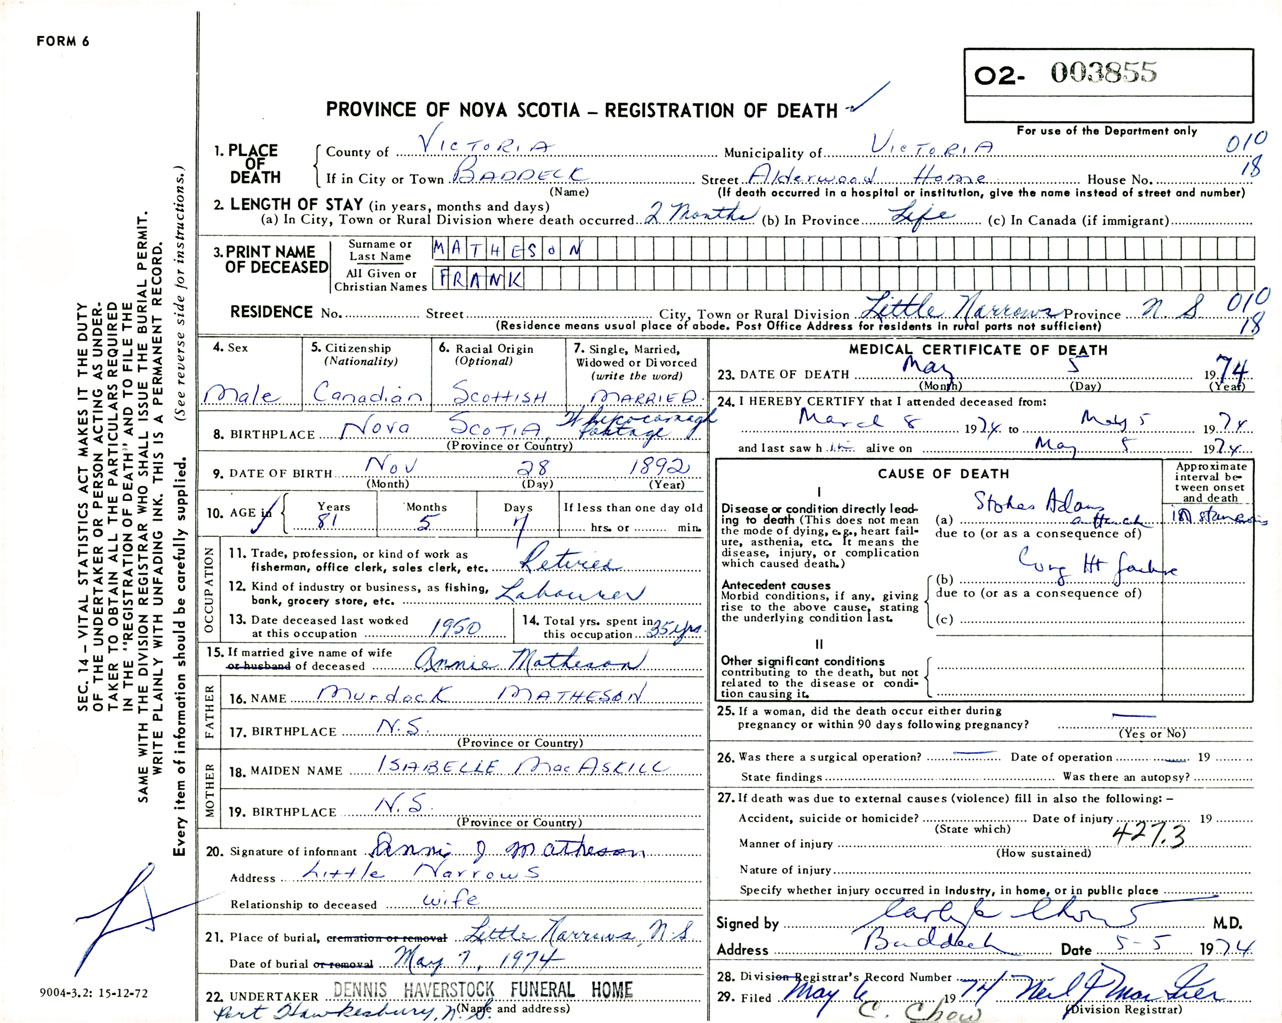 FORM 6
O2- 003855
For use of the Department only
PROVINCE OF NOVA SCOTIA – REGISTRATION OF DEATH
1. PLACE OF DEATH
County of VICTORIA Municipality of VICTORIA 010
If in City or Town BADDECK Street Alderwood Home House No. 18
(Name) (If death occurred in a hospital or institution, give the name instead of street and number)
2. LENGTH OF STAY (in years, months and days)
(a) In City, Town or Rural Division where death occurred 2 Months (b) In Province Life (c) In Canada (if immigrant)
3. PRINT NAME OF DECEASED
Surname or Last Name MATHESON
All Given or Christian Names FRANK
RESIDENCE No. Street City, Town or Rural Division Little Narrows Province N S 010
(Residence means usual place of abode. Post Office Address for residents in rural parts not sufficient) 18
4. Sex
Male
5. Citizenship (Nationality)
Canadian
6. Racial Origin (Optional)
SCOTTISH
7. Single, Married, Widowed or Divorced (write the word)
MARRIED
8. BIRTHPLACE Nova SCOTIA, Whycocomagh Portage
(Province or Country)
9. DATE OF BIRTH Nov 28 1892
(Month) (Day) (Year)
10. AGE in Years Months Days If less than one day old
81 5 7 hrs. or min.
OCCUPATION
11. Trade, profession, or kind of work as fisherman, office clerk, sales clerk, etc. Retired
12. Kind of industry or business, as fishing, bank, grocery store, etc. Labourer
13. Date deceased last worked at this occupation 1950
14. Total yrs. spent in this occupation 35 yrs.
15. If married give name of wife or husband of deceased Annie Matheson
FATHER
16. NAME Murdock MATHESON
17. BIRTHPLACE N.S.
(Province or Country)
MOTHER
18. MAIDEN NAME ISABELLE MacASKILL
19. BIRTHPLACE N.S.
(Province or Country)
20. Signature of informant Annie J Matheson
Address Little Narrows
Relationship to deceased wife
21. Place of burial, cremation or removal Little Narrows, N.S
Date of burial or removal May 7, 1974
22. UNDERTAKER DENNIS HAVERSTOCK FUNERAL HOME
Port Hawkesbury, N.S. (Name and address)
MEDICAL CERTIFICATE OF DEATH
23. DATE OF DEATH May 5 1974
(Month) (Day) (Year)
24. I HEREBY CERTIFY that I attended deceased from:
March 8 1974 to May 5 1974
and last saw h im alive on May 5 1974
CAUSE OF DEATH
Approximate interval between onset and death
I
Disease or condition directly leading to death (This does not mean the mode of dying, e.g., heart failure, asthenia, etc. It means the disease, injury, or complication which caused death.)
(a) Stokes Adams attack
due to (or as a consequence of)
Antecedent causes
Morbid conditions, if any, giving rise to the above cause, stating the underlying condition last.
(b) Cong Ht failure
due to (or as a consequence of)
(c)
II
Other significant conditions contributing to the death, but not related to the disease or condition causing it.
25. If a woman, did the death occur either during pregnancy or within 90 days following pregnancy? —
(Yes or No)
26. Was there a surgical operation? — Date of operation — 19
State findings Was there an autopsy?
27. If death was due to external causes (violence) fill in also the following: –
Accident, suicide or homicide? Date of injury 19
(State which) 427.3
Manner of injury
(How sustained)
Nature of injury
Specify whether injury occurred in Industry, in home, or in public place
Signed by Carlyle Chow M.D.
Address Baddeck Date 5-5 1974
28. Division Registrar's Record Number
29. Filed May 6 1974 Neil J
C. Chow (Division Registrar)
SEC. 14 – VITAL STATISTICS ACT MAKES IT THE DUTY
OF THE UNDERTAKER OR PERSON ACTING AS UNDER-
TAKER TO OBTAIN ALL THE PARTICULARS REQUIRED
IN THE "REGISTRATION OF DEATH" AND TO FILE THE
SAME WITH THE DIVISION REGISTRAR WHO SHALL ISSUE THE BURIAL PERMIT.
WRITE PLAINLY WITH UNFADING INK. THIS IS A PERMANENT RECORD.
Every item of information should be carefully supplied. (See reverse side for instructions.)
9004-3.2: 15-12-72